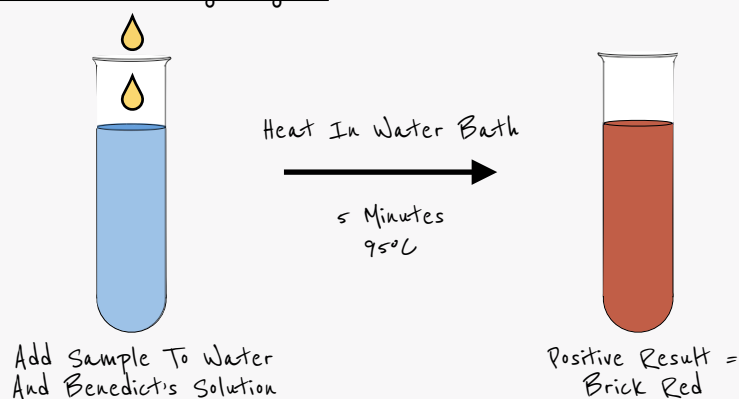 Heat In Water Bath
5 Minutes
95°C
Add Sample To Water
And Benedict's Solution
Positive Result =
Brick Red